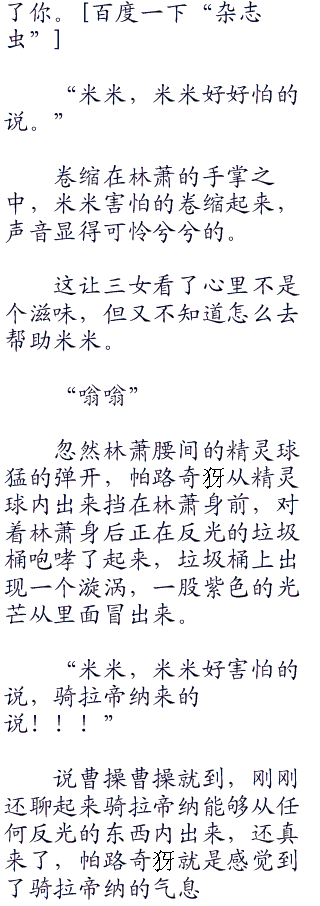 了你。[百度一下“杂志
虫”]
“米米，米米好好怕的
说。”
卷缩在林萧的手掌之
中，米米害怕的卷缩起来，
声音显得可怜兮兮的。
这让三女看了心里不是
个滋味，但又不知道怎么去
帮助米米。
“嗡嗡”
忽然林萧腰间的精灵球
猛的弹开，帕路奇犽从精灵
球内出来挡在林萧身前，对
着林萧身后正在反光的垃圾
桶咆哮了起来，垃圾桶上出
现一个漩涡，一股紫色的光
芒从里面冒出来。
“米米，米米好害怕的
说，骑拉帝纳来的
说！！！”
说曹操曹操就到，刚刚
还聊起来骑拉帝纳能够从任
何反光的东西内出来，还真
来了，帕路奇犽就是感觉到
了骑拉帝纳的气息